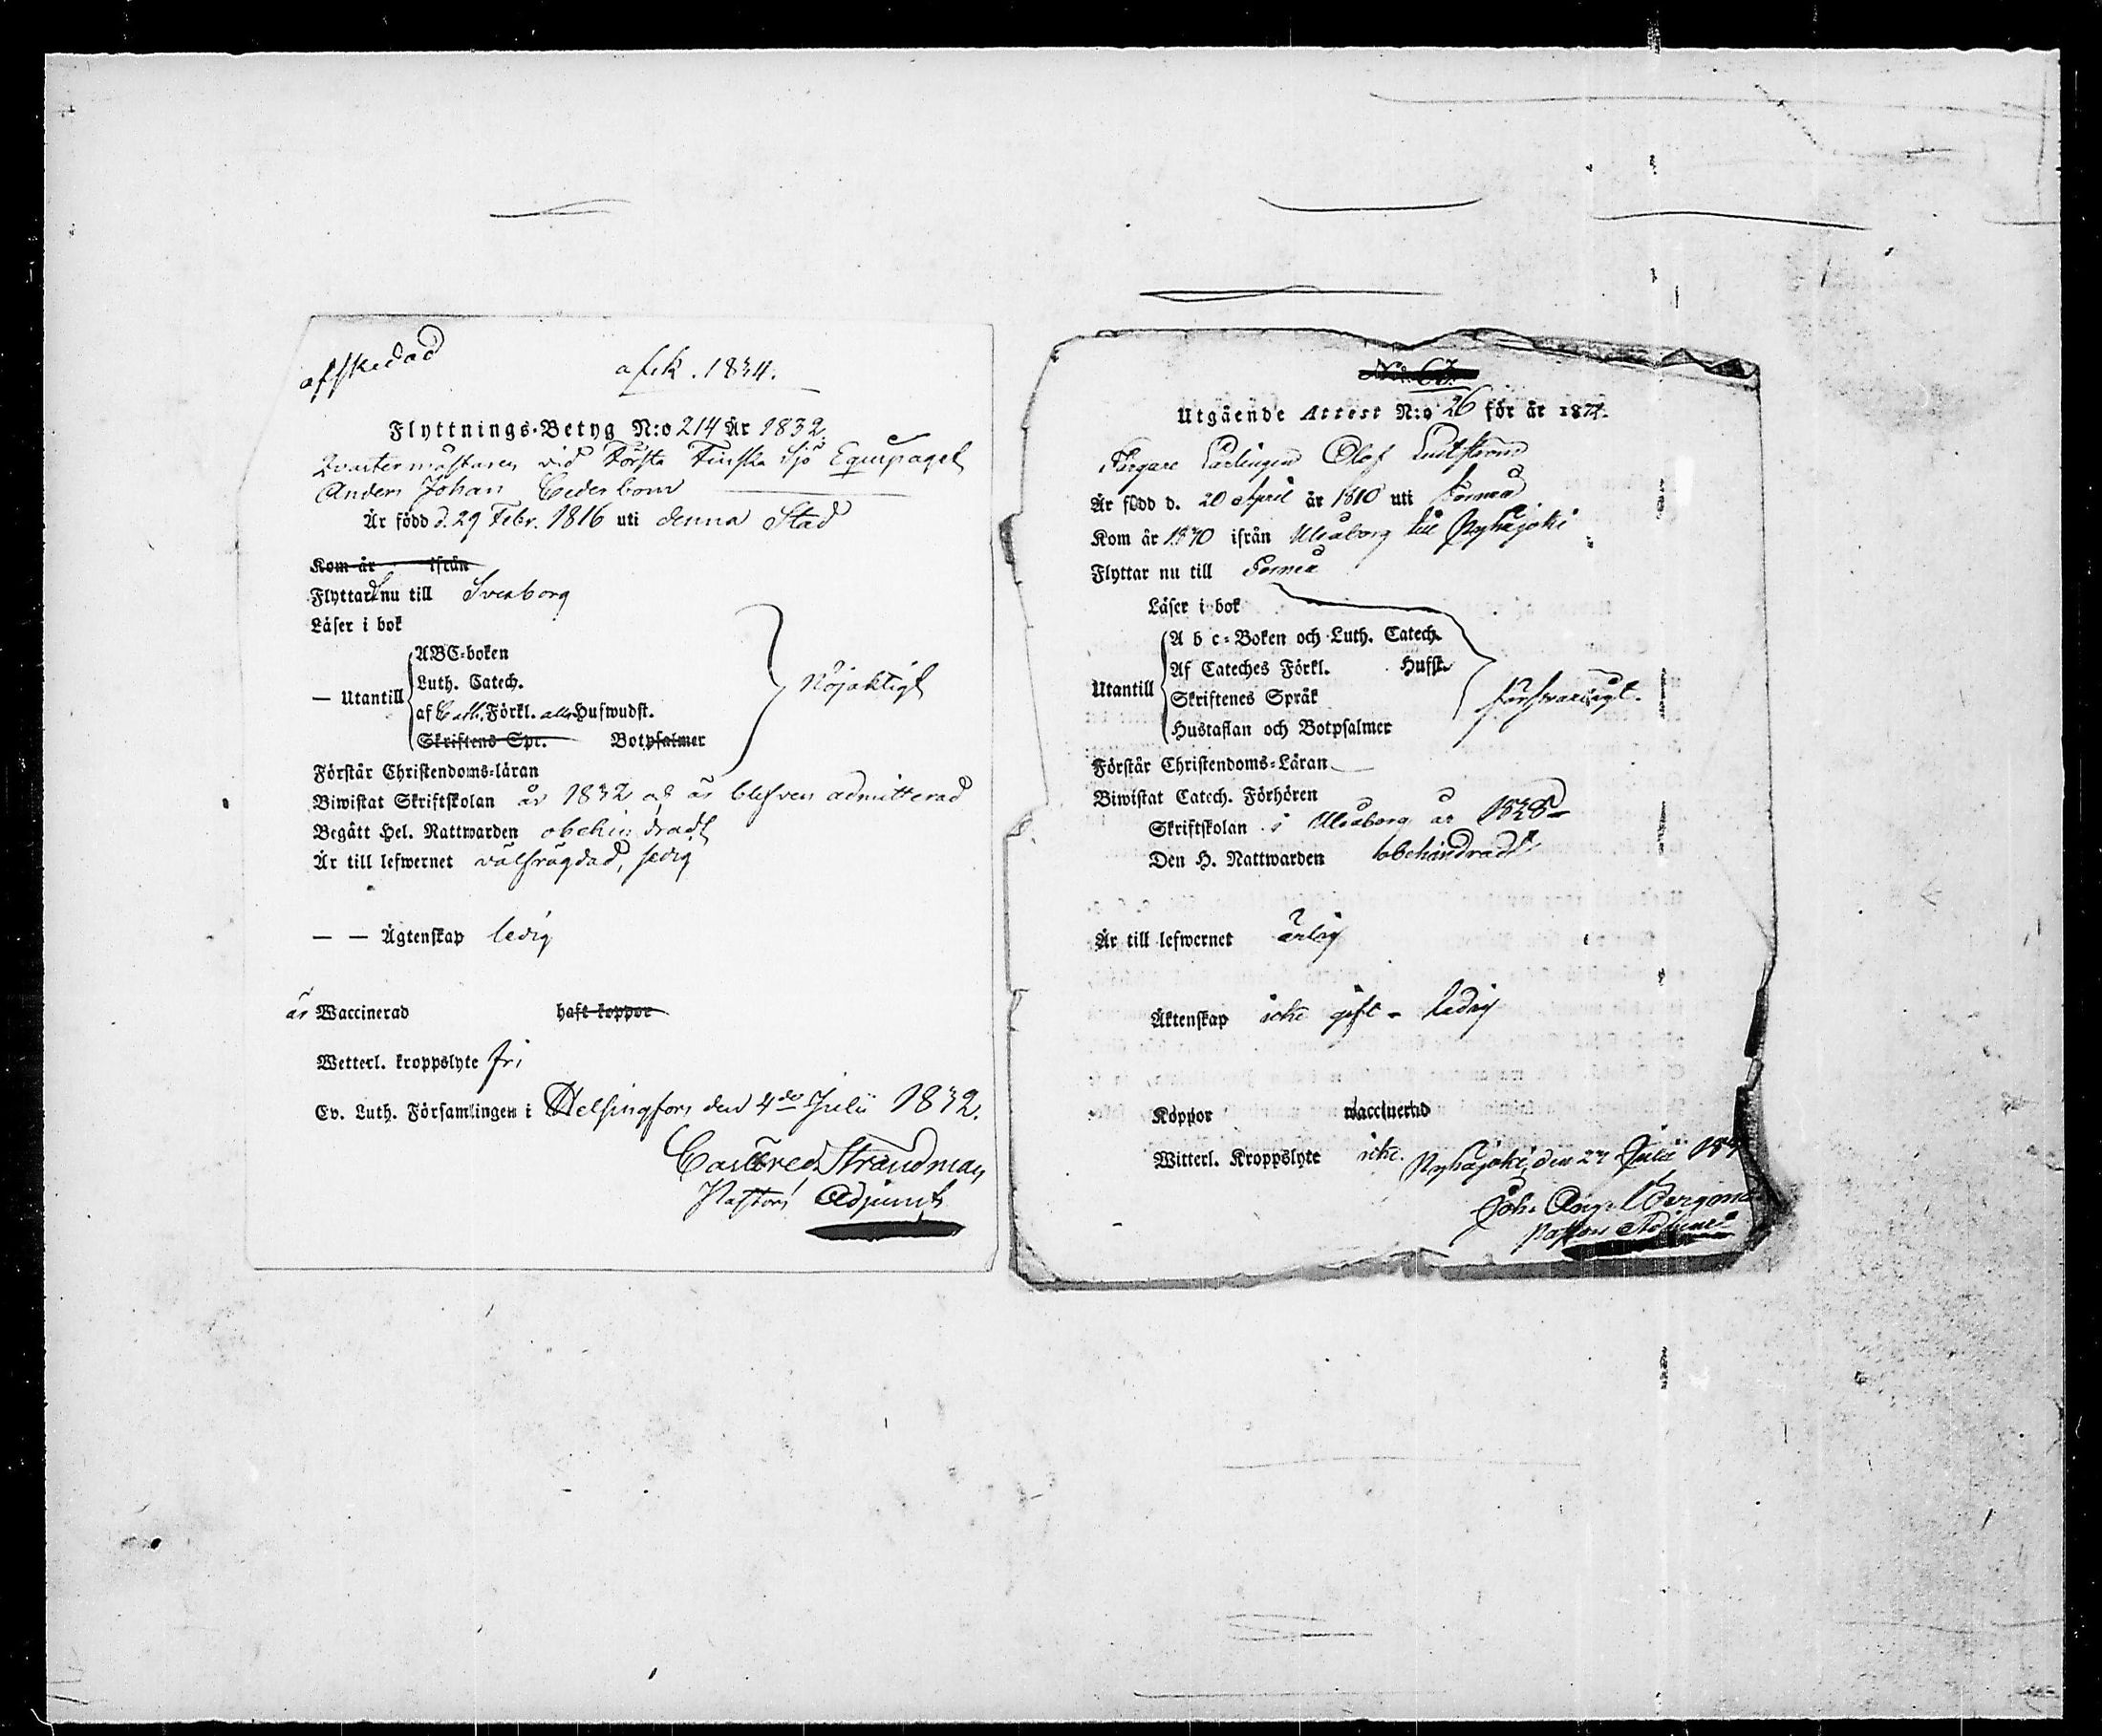 afskedad
afsk. 1834.
Flyttnings-Betyg N:o 214 År 1832.
Qvartermästaren vid Första Finska Sjö Equipaget
Anders Johan Cederbom
Är född d. 29 Febr. 1816 uti denna Stad
Kom år ifrån
Flyttar nu till Sveaborg
Läser i bok
ABC-boken
Luth. Catech.
— Utantill
af Cath. Förkl. alla Hufwudst.
Nöjaktigt
Skriftens Spr. Botpsalmer
Förstår Christendoms-läran
Biwistat Skriftskolan år 1832 och är blefven admitterad
Begått Hel. Nattwarden obehindradt
Är till lefwernet välfrägdad, ledig
— — Ägtenskap ledig
är Waccinerad haft koppor
Wetterl. kroppslyte fri
Ev. Luth. Församlingen i Helsingfors den 4de Julii 1832.
Strandman
Pastors Adjunct
Utgående Attest N:o 26 för år 18
Färgare Lärlingen Olof
Är född d. 20 April år 1810 uti Torneå
Kom år 1830 ifrån Uleåborg till Pyhäjoki
Flyttar nu till Torneå
Läser i bok
A b c-Boken och Luth. Catech.
Af Cateches Förkl. Hufst.
Utantill
Skriftenes Språk
försvarligt.
Hustaflan och Botpsalmer
Förstår Christendoms-Läran
Biwistat Catech. Förhören
Skriftskolan i Uleåborg år 1828
Den H. Nattwarden obehindradt
Är till lefwernet ärlig
Äktenskap icke gift - ledig
Koppor waccinerad
Witterl. Kroppslyte icke.
Pyhäjoki, den 27 Julii
Joh.
Pastors Adjunct